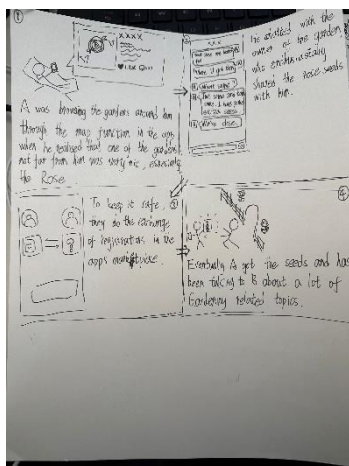 ①
XXXX
A was browsing the gardens around him
through the map function in the app,
when he realised that one of the gardens
not far from him was very nice, especially
the Rose.
②
XXX
he chatted with the
owner of the garden
who enthusiastically
shared the rose seeds
with him.
③
To keep it safe,
they do the exchange
of registration in the
apps
④
Eventually A got the seeds and has
been talking to B about a lot of
Gardening related topics.